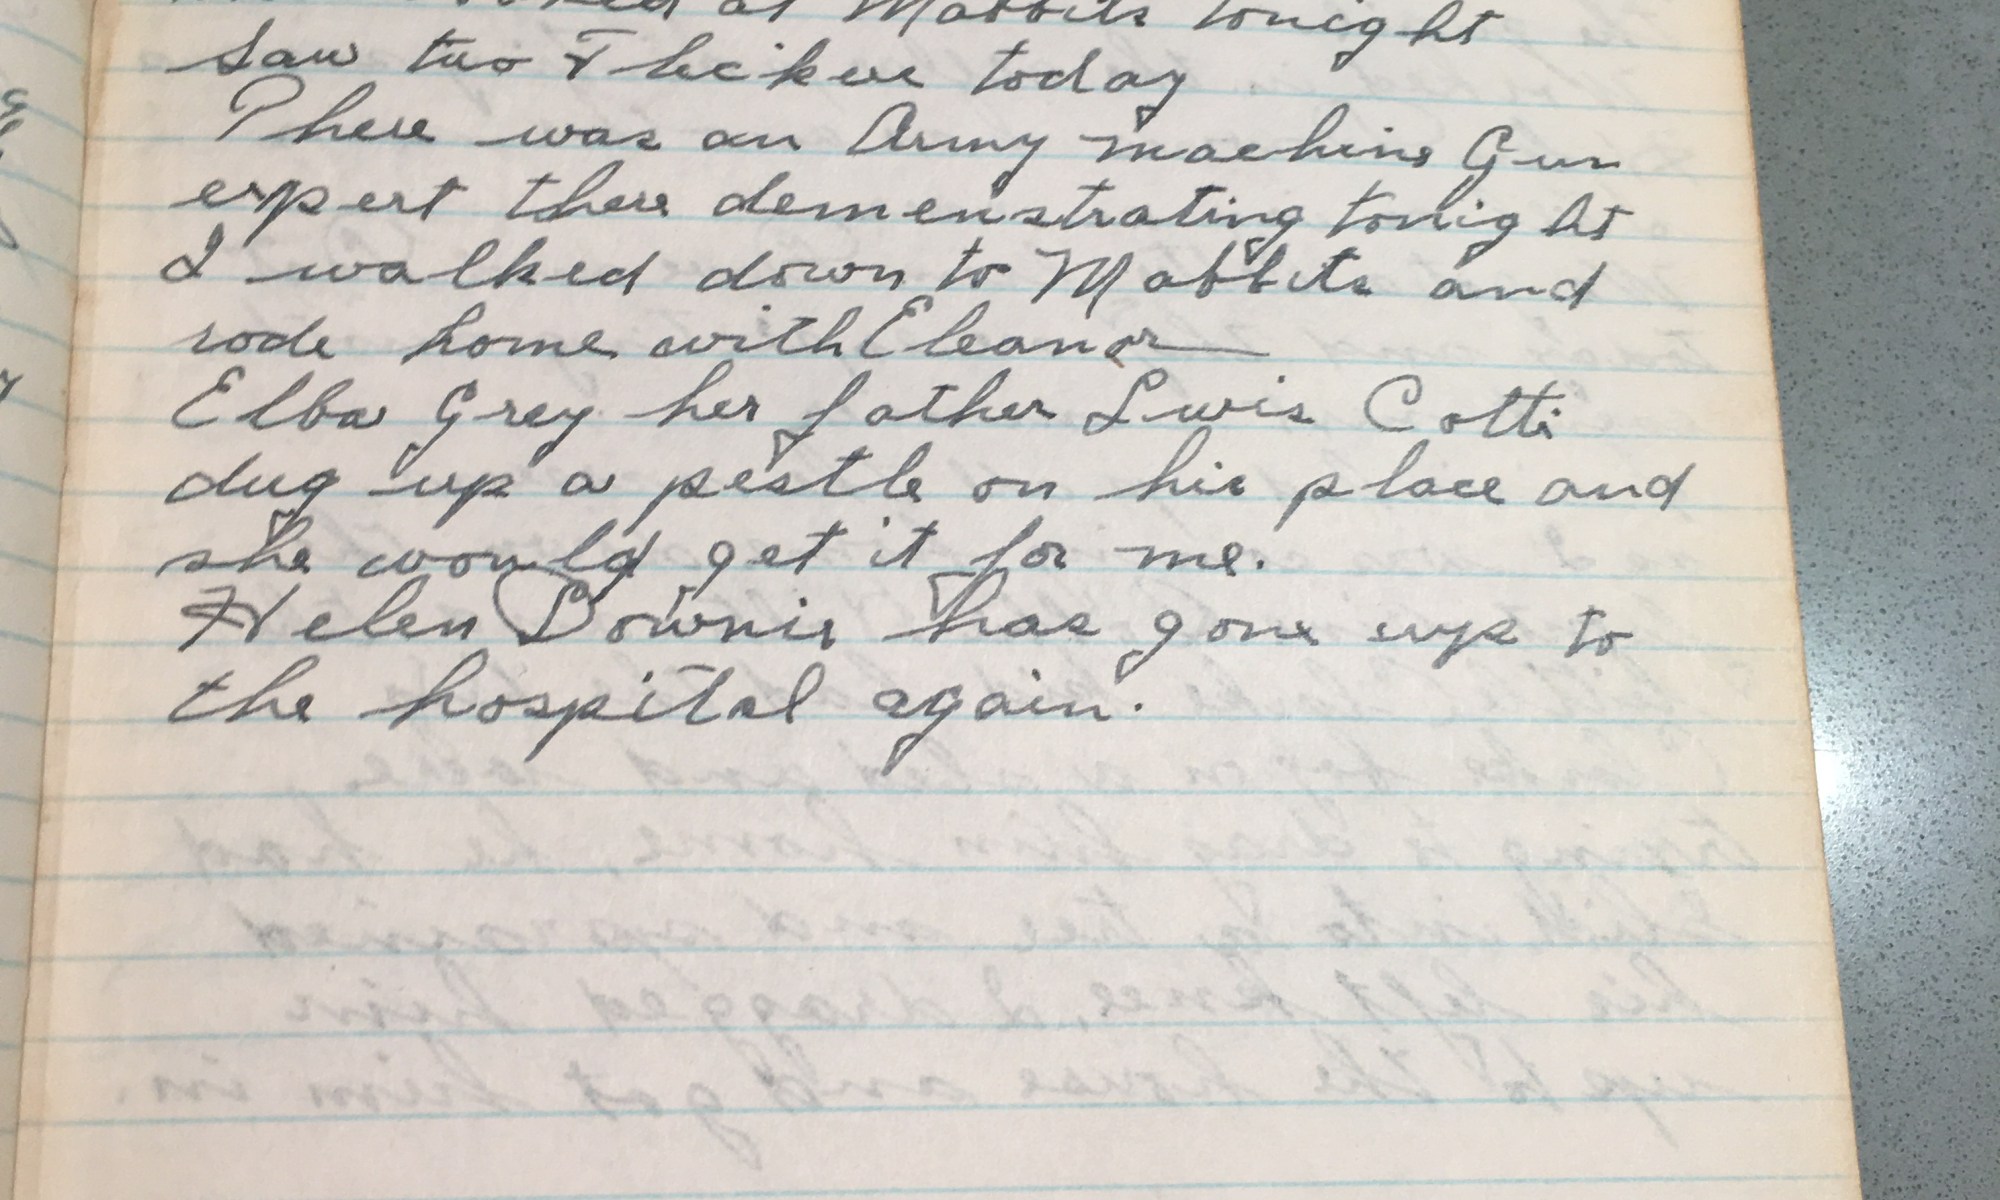 at Mabbits tonight
saw two Flickers today
There was an Army machine Gun
expert there demenstrating tonight
I walked down to Mabbits and
rode home with Eleanor
Elba Grey her father Lwis Cotti
dug up a pestle on his place and
she would get it for me.
Helen Downie has gone up to
the hospital again.